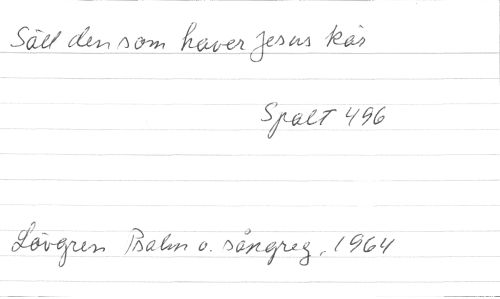 Säll den som haver Jesus kär
Spalt 496
Lövgren Psalm o. sångreg. 1964